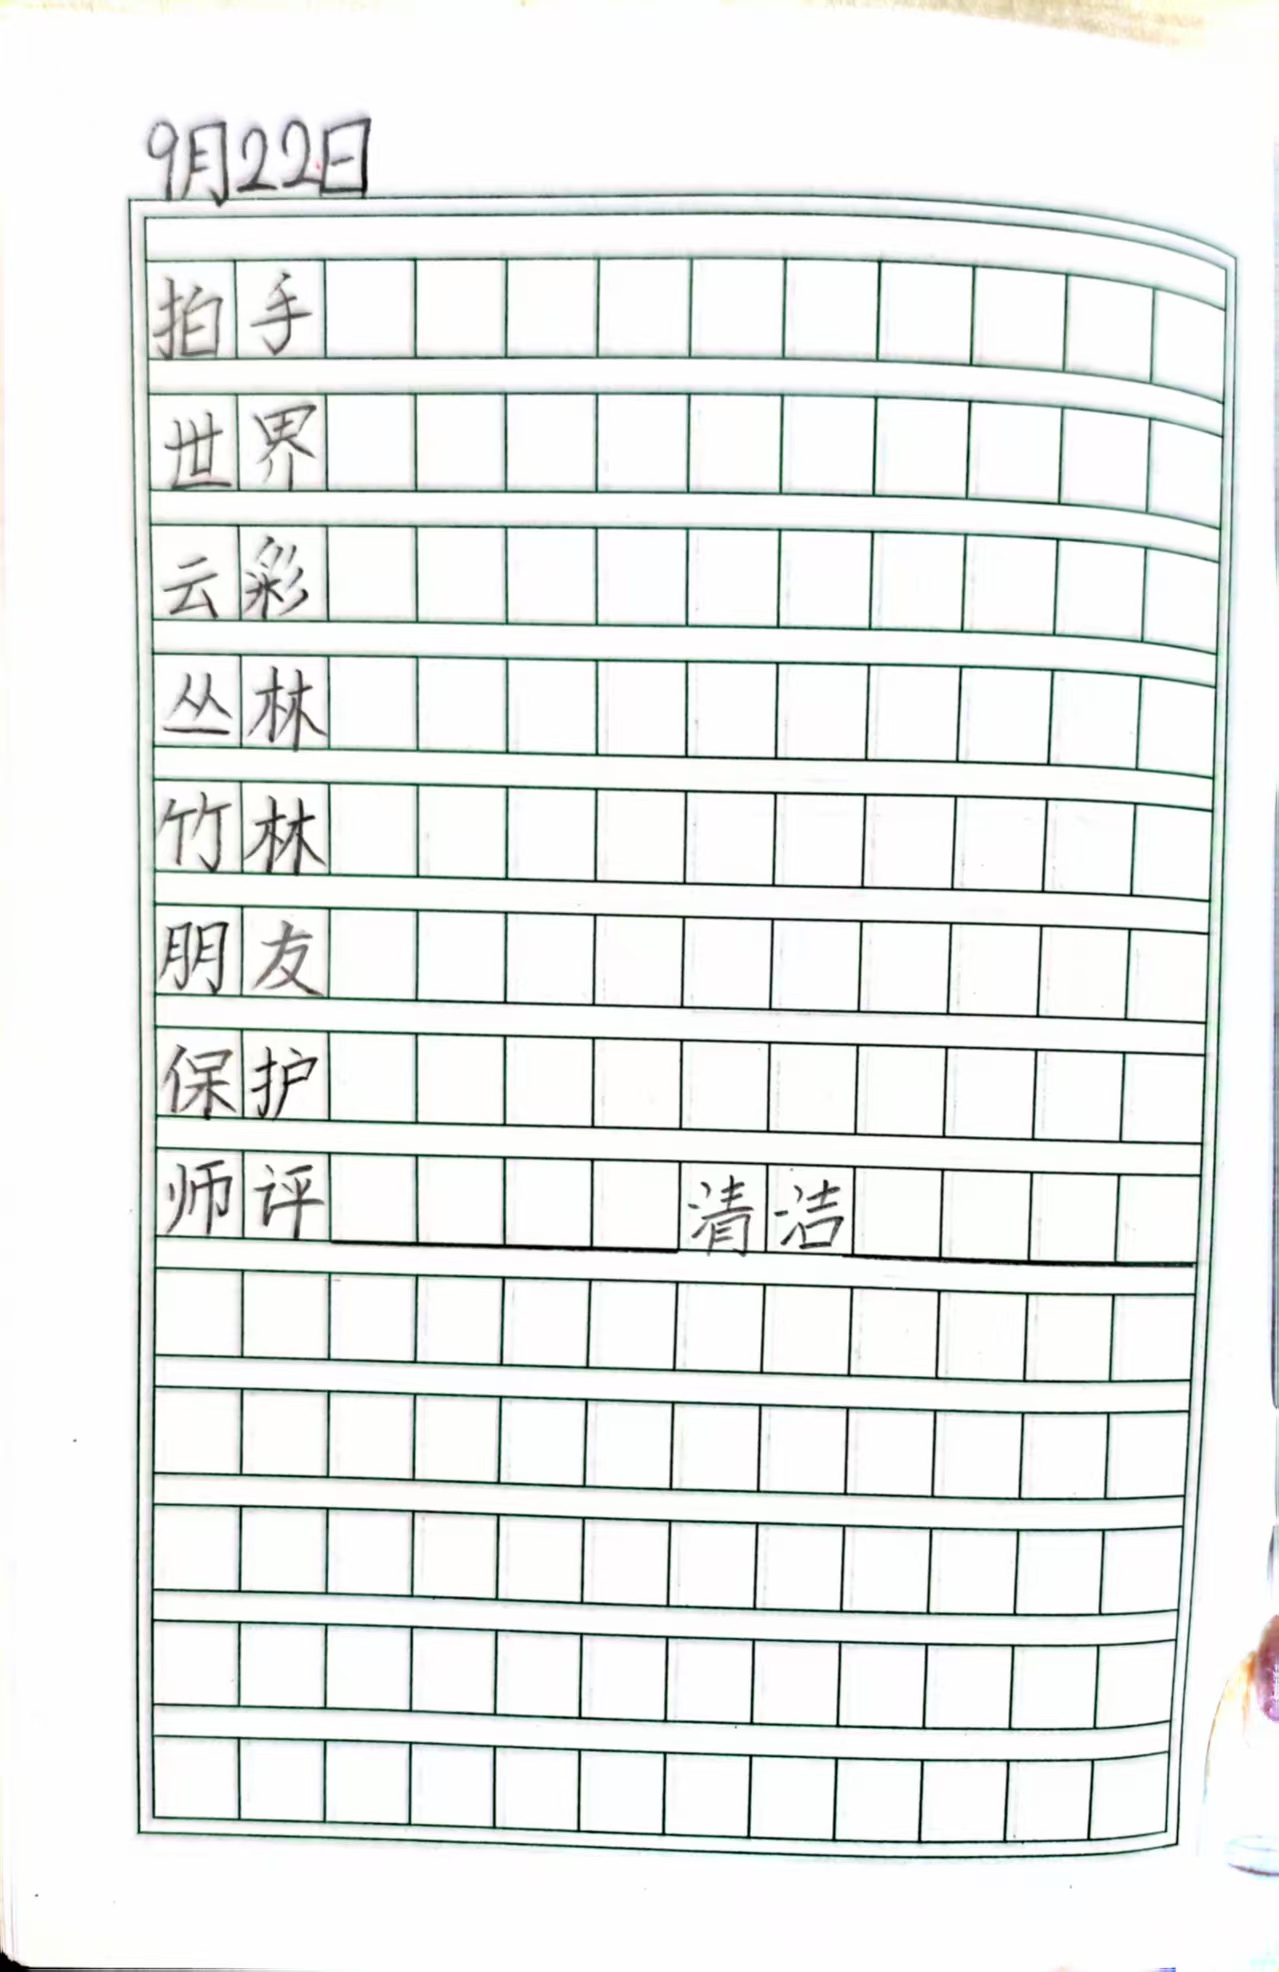 9月22日
拍手
世界
云彩
丛林
竹林
朋友
保护
师评 清洁